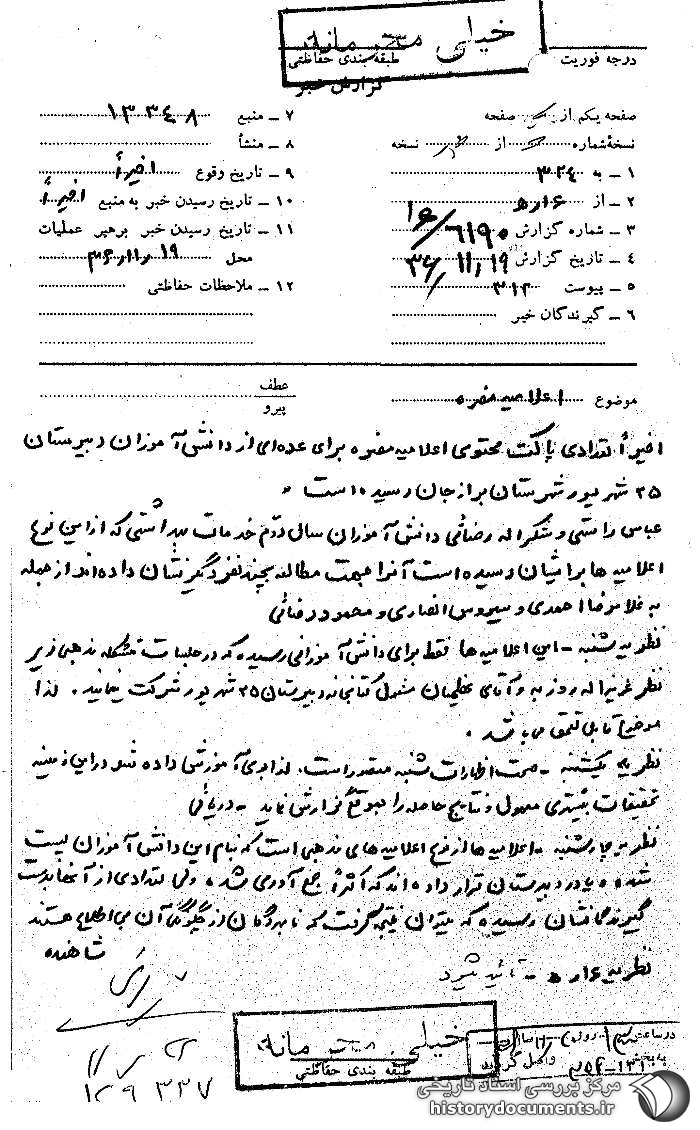 خیلی محرمانه
طبقه بندی حفاظتی
درجه فوریت
گزارش خبر
صفحه یکم از یک صفحه
نسخهٔ شماره از نسخه
۱ - به ۳۲۴
۲ - از ۱۶ﻫ۵
۳ - شماره گزارش ۱۶/۶۱۹۰
۴ - تاریخ گزارش ۳۶/۱۱/۱۹
۵ - پیوست ۳۱۲
۶ - گیرندگان خبر
۷ - منبع ۱۳۳۴۸
۸ - منشأ
۹ - تاریخ وقوع اخیراً
۱۰ - تاریخ رسیدن خبر به منبع اخیراً
۱۱ - تاریخ رسیدن خبر برهبر عملیات
محل ۱۹
۱۲ - ملاحظات حفاظتی
موضوع اعلامیه مضره
عطف
پیرو
اخیراً تعدادی پاکت محتوی اعلامیه مضره برای عده‌ای از دانش‌آموزان دبیرستان
۲۵ شهریور شهرستان برازجان رسیده است .
عباس راستی و شکراله رضائی دانش آموزان سال دوم خدمات بهداشتی که از این نوع
اعلامیه ها برایشان رسیده است آنرا جهت مطالعه بچند نفر دیگر نشان داده‌اند از جمله
به غلامرضا احمدی و سیروس انصاری و محمود رضائی
نظریه شنبه - این اعلامیه ها فقط برای دانش‌آموزانی رسیده که در جلسات متشکله مذهبی زیر
نظر عزیزاله روزبه و آقای عظیمیان مسئول کتابخانه دبیرستان ۲۵ شهریور شرکت مینمایند . لذا
موضوع قابل تعمق میباشد .
نظریه یکشنبه - صحت اظهارات شنبه مورد است. لذا بوی آموزش داده شد در این زمینه
تحقیقات بیشتری معمول و نتایج حاصله را بموقع گزارش نماید - دریائی
نظریه چهارشنبه - اعلامیه ها از نوع اعلامیه های مذهبی است که بنام این دانش آموزان پست
شده و یا در دبیرستان قرار داده‌اند که اکثراً جمع آوری شده ولی تعدادی از آنها بدست
گیرندگانشان رسیده که میتوان نتیجه گرفت که نامبردگان از چگونگی آن بی اطلاع هستند
شاهنده
نظریه ۱۶ﻫ۵ - تائید میگردد
۱۲۹۳۳۷
خیلی محرمانه
طبقه بندی حفاظتی
در ساعت روز
به بخش واصل گردید
مرکز بررسی اسناد تاریخی
historydocuments.ir